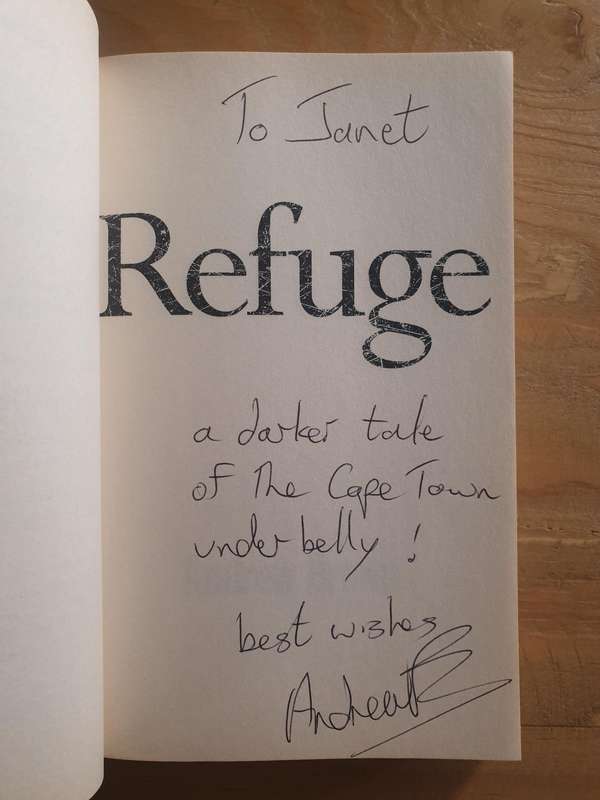 To Janet
Refuge
a darker tale
of The Cape Town
under belly !
best wishes
Andrew